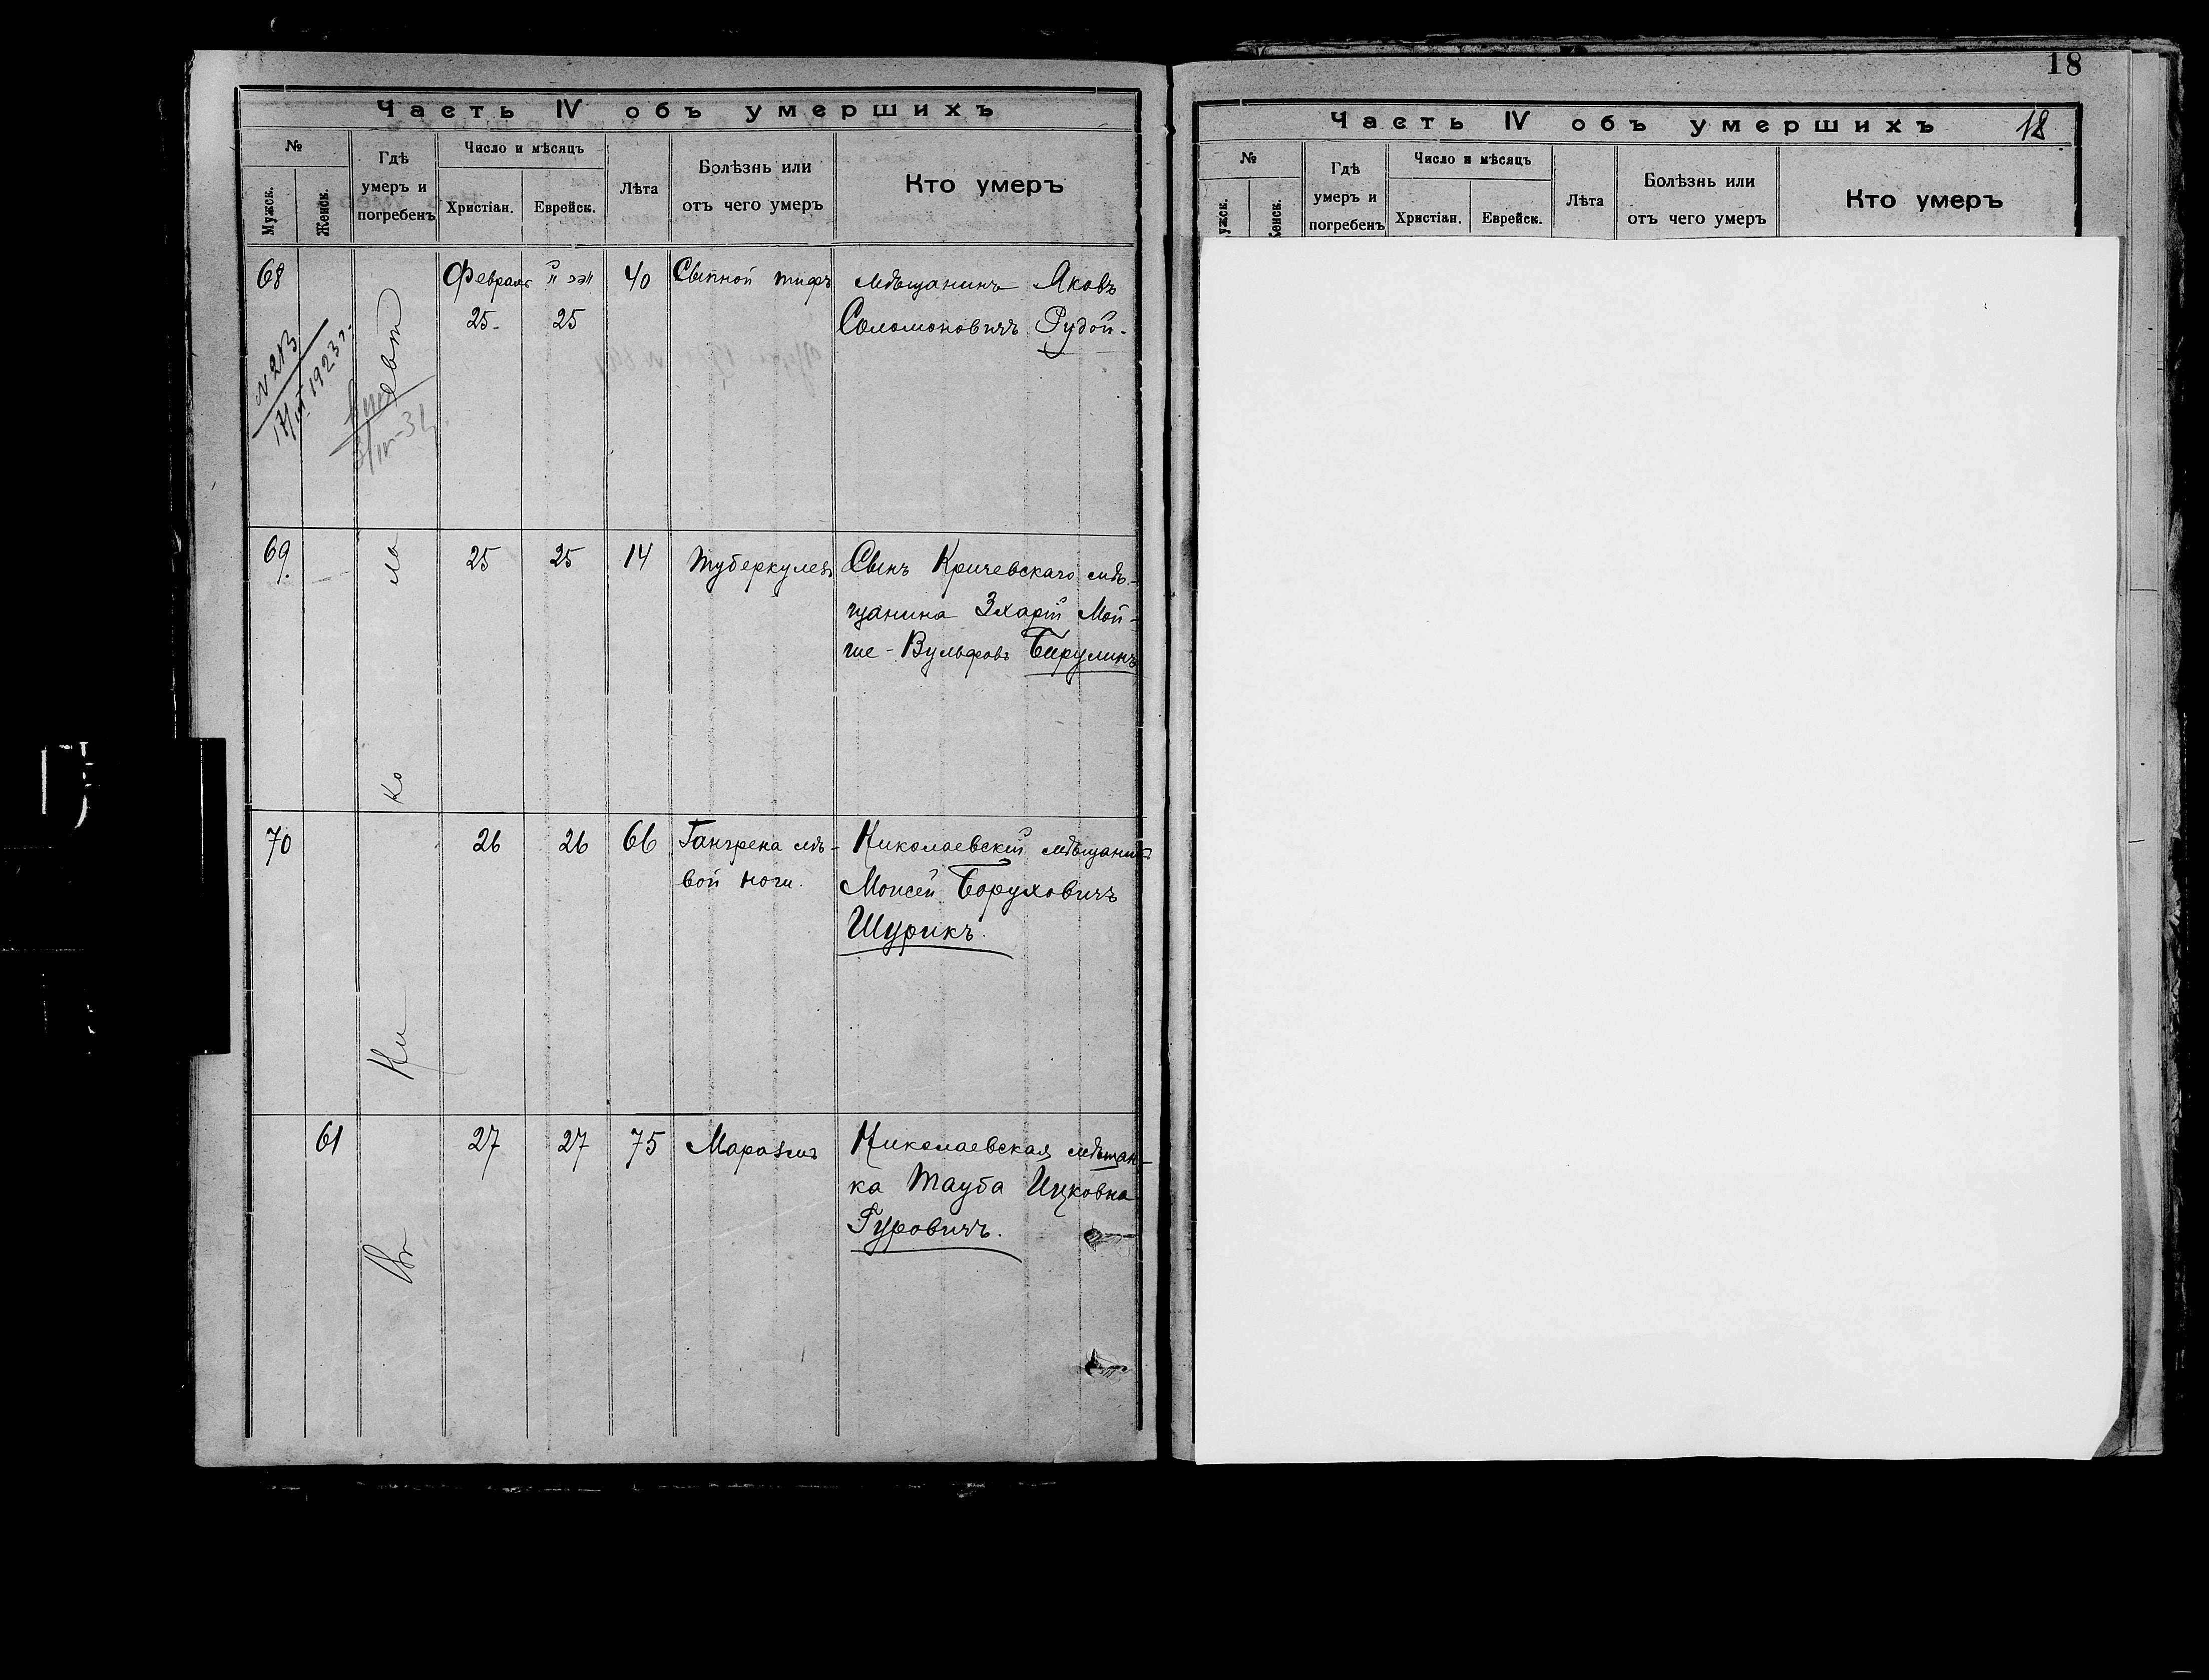 Часть IV объ умершихъ
№
Мужск.
Женск.
Гдѣ
умеръ и
погребенъ
Число и мѣсяцъ
Христіан.
Еврейск.
Лѣта
Болѣзнь или
отъ чего умеръ
Кто умеръ
68
N 213
17/III 1923 г.
Февраля
25
25
40
Сыпной тифъ
Мѣщанинъ Яковъ
Соломоновичъ Рудой.
69.
25
25
14
Туберкулезъ
Сынъ Кричевскаго мѣ-
щанина Зхарій Мой-
ше-Вульфовъ Бирулинъ
70
26
26
66
Гангрена лѣ-
вой ноги.
Николаевскій мѣщанинъ
Моисей Боруховичъ
Шурикъ.
61
27
27
75
Маразмъ
Николаевская мѣщан-
ка Тауба Ицковна
Гуровичъ.
Въ Николаевѣ
18
Часть IV объ умершихъ
18
№
ужск.
Женск.
Гдѣ
умеръ и
погребенъ
Число и мѣсяцъ
Христіан.
Еврейск.
Лѣта
Болѣзнь или
отъ чего умеръ
Кто умеръ